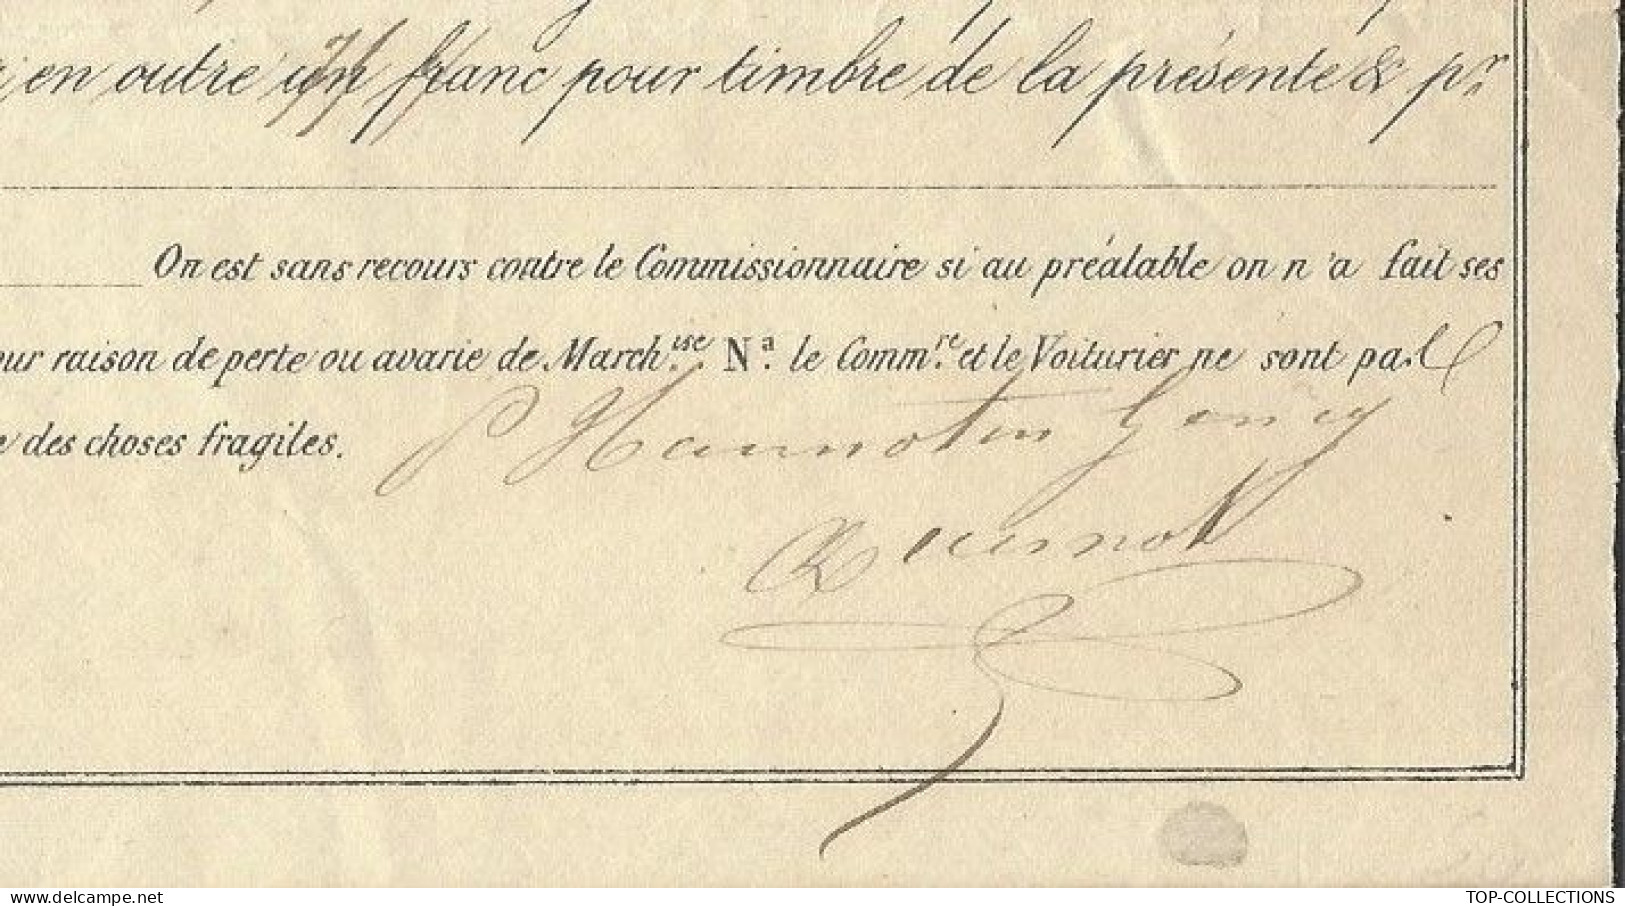 en outre un franc pour timbre de la présente & pr
On est sans recours contre le Commissionnaire si au préalable on n'a fait ses
our raison de perte ou avarie de March.ise Na. le Comm.re et le Voiturier ne sont pas
e des choses fragiles.
P Hannotin
TOP-COLLECTIONS